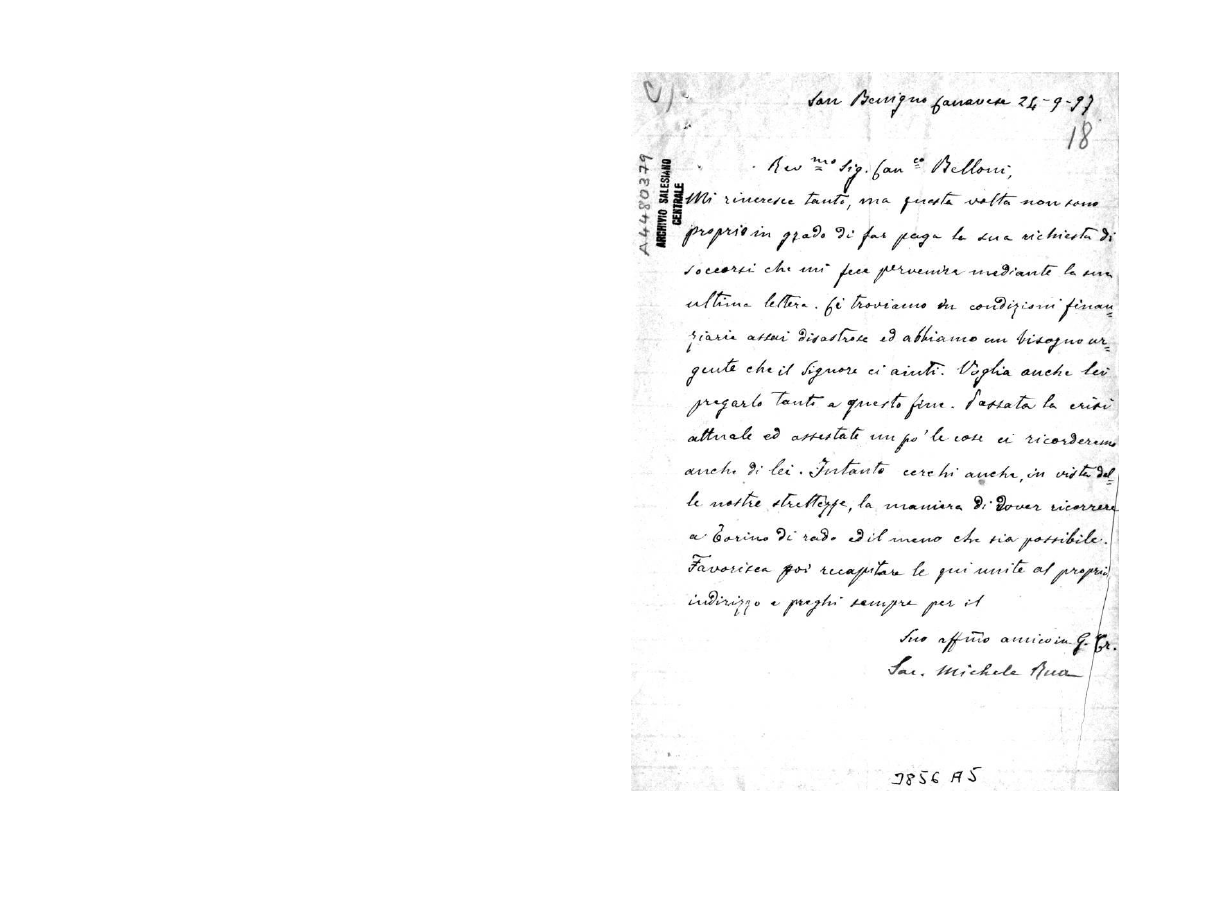 San Benigno Canavese 24-9-97
18
A4480379
ARCHIVIO SALESIANO
CENTRALE
Rev.mo Sig. Can.co Belloni,
Mi rincresce tanto, ma questa volta non sono
proprio in grado di far paga la sua richiesta di
soccorsi che mi fece pervenire mediante la sua
ultima lettera. Ci troviamo in condizioni finan=
ziarie assai disastrose ed abbiamo un bisogno ur=
gente che il Signore ci aiuti. Voglia anche lei
pregarlo tanto a questo fine. Passata la crisi
attuale ed assestate un po' le cose ci ricorderemo
anche di lei. Intanto cerchi anche, in vista del=
le nostre strettezze, la maniera di dover ricorrere
a Torino di rado ed il meno che sia possibile.
Favorisca poi recapitare le qui unite al proprio
indirizzo e preghi sempre per il
Suo aff.mo amico in G. Cr.
Sac. Michele Rua
3856 A5